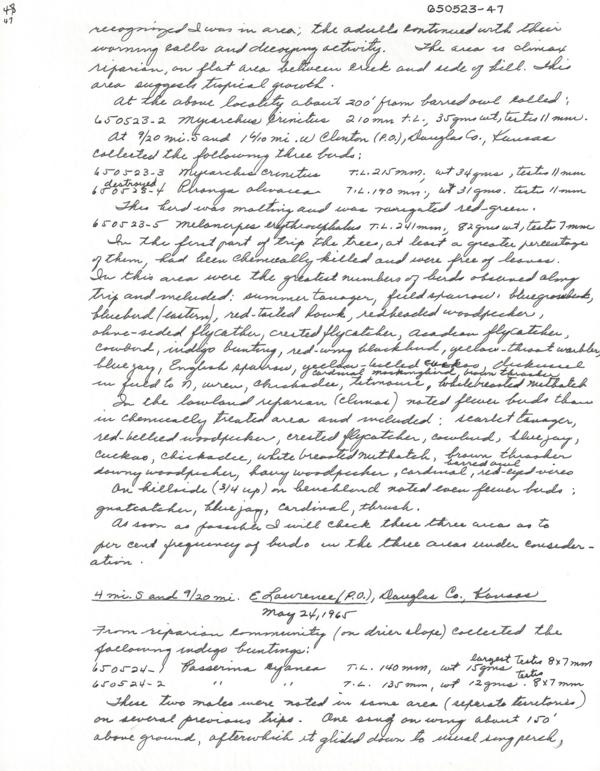 48
47
650523-47
recognized I was in area; the adults continued with their
warning calls and decoying activity. The area is climax
riparian, on flat area between creek and side of hill. This
area suggests tropical growth.
At the above locality about 200' from barred owl called:
650523-2 Myiarchus crinitus 210 mm T.L., 35 gms wt, testis 11 mm.
At 9/20 mi. S and 1 4/10 mi. W Clinton (P.O.), Douglas Co., Kansas
collected the following three birds:
650523-3 Myiarchus crinitus T.L. 215 mm; wt 34 gms, testis 11 mm
destroyed
650523-4 Piranga olivacea T.L. 190 mm; wt 31 gms. testis 11 mm
This bird was molting and was variegated red-green.
650523-5 Melanerpes erythrocephalus T.L. 241 mm, 82 gms wt, testis 7 mm
In the first part of trip the trees, at least a greater percentage
of them, had been chemically killed and were free of leaves.
In this area were the greatest numbers of birds observed along
trip and included: summer tanager, field sparrow, blue grosbeak,
bluebird (eastern), red-tailed hawk, redheaded woodpecker,
olive-sided flycather, crested flycatcher, acadian flycatcher,
cowbird, indigo bunting, red-wing blackbird, yellow-throat warbler,
blue jay, English sparrow, yellow-billed cuckoo, dickcissel
cardinal, mockingbird, brown thrasher
in field to N, wren, chickadee, titmouse, whitebreasted nuthatch
In the lowland riparian (climax) noted fewer birds than
in chemically treated area and included: scarlet tanager,
red-bellied woodpecker, crested flycatcher, cowbird, blue jay,
cuckoo, chickadee, white breasted nuthatch, brown thrasher
barred owl
downy woodpecker, hairy woodpecker, cardinal, red-eyed vireo
On hillside (3/4 up) on benchland noted even fewer birds;
gnatcatcher, blue jay, cardinal, thrush.
As soon as possible I will check these three areas as to
per cent frequency of birds in the three areas under consider-
ation.
4 mi. S and 9/20 mi. E Lawrence (P.O.), Douglas Co., Kansas
May 24, 1965
From riparian community (on drier slope) collected the
following indigo buntings:
650524-1 Passerina cyanea T.L. 140 mm, wt 15 gms largest testis 8x7 mm
650524-2 " " T.L. 135 mm, wt 12 gms. testis 8x7 mm
These two males were noted in same area (seperate territories)
on several previous trips. One sung on wing about 150'
above ground, afterwhich it glided down to usual sing perch,